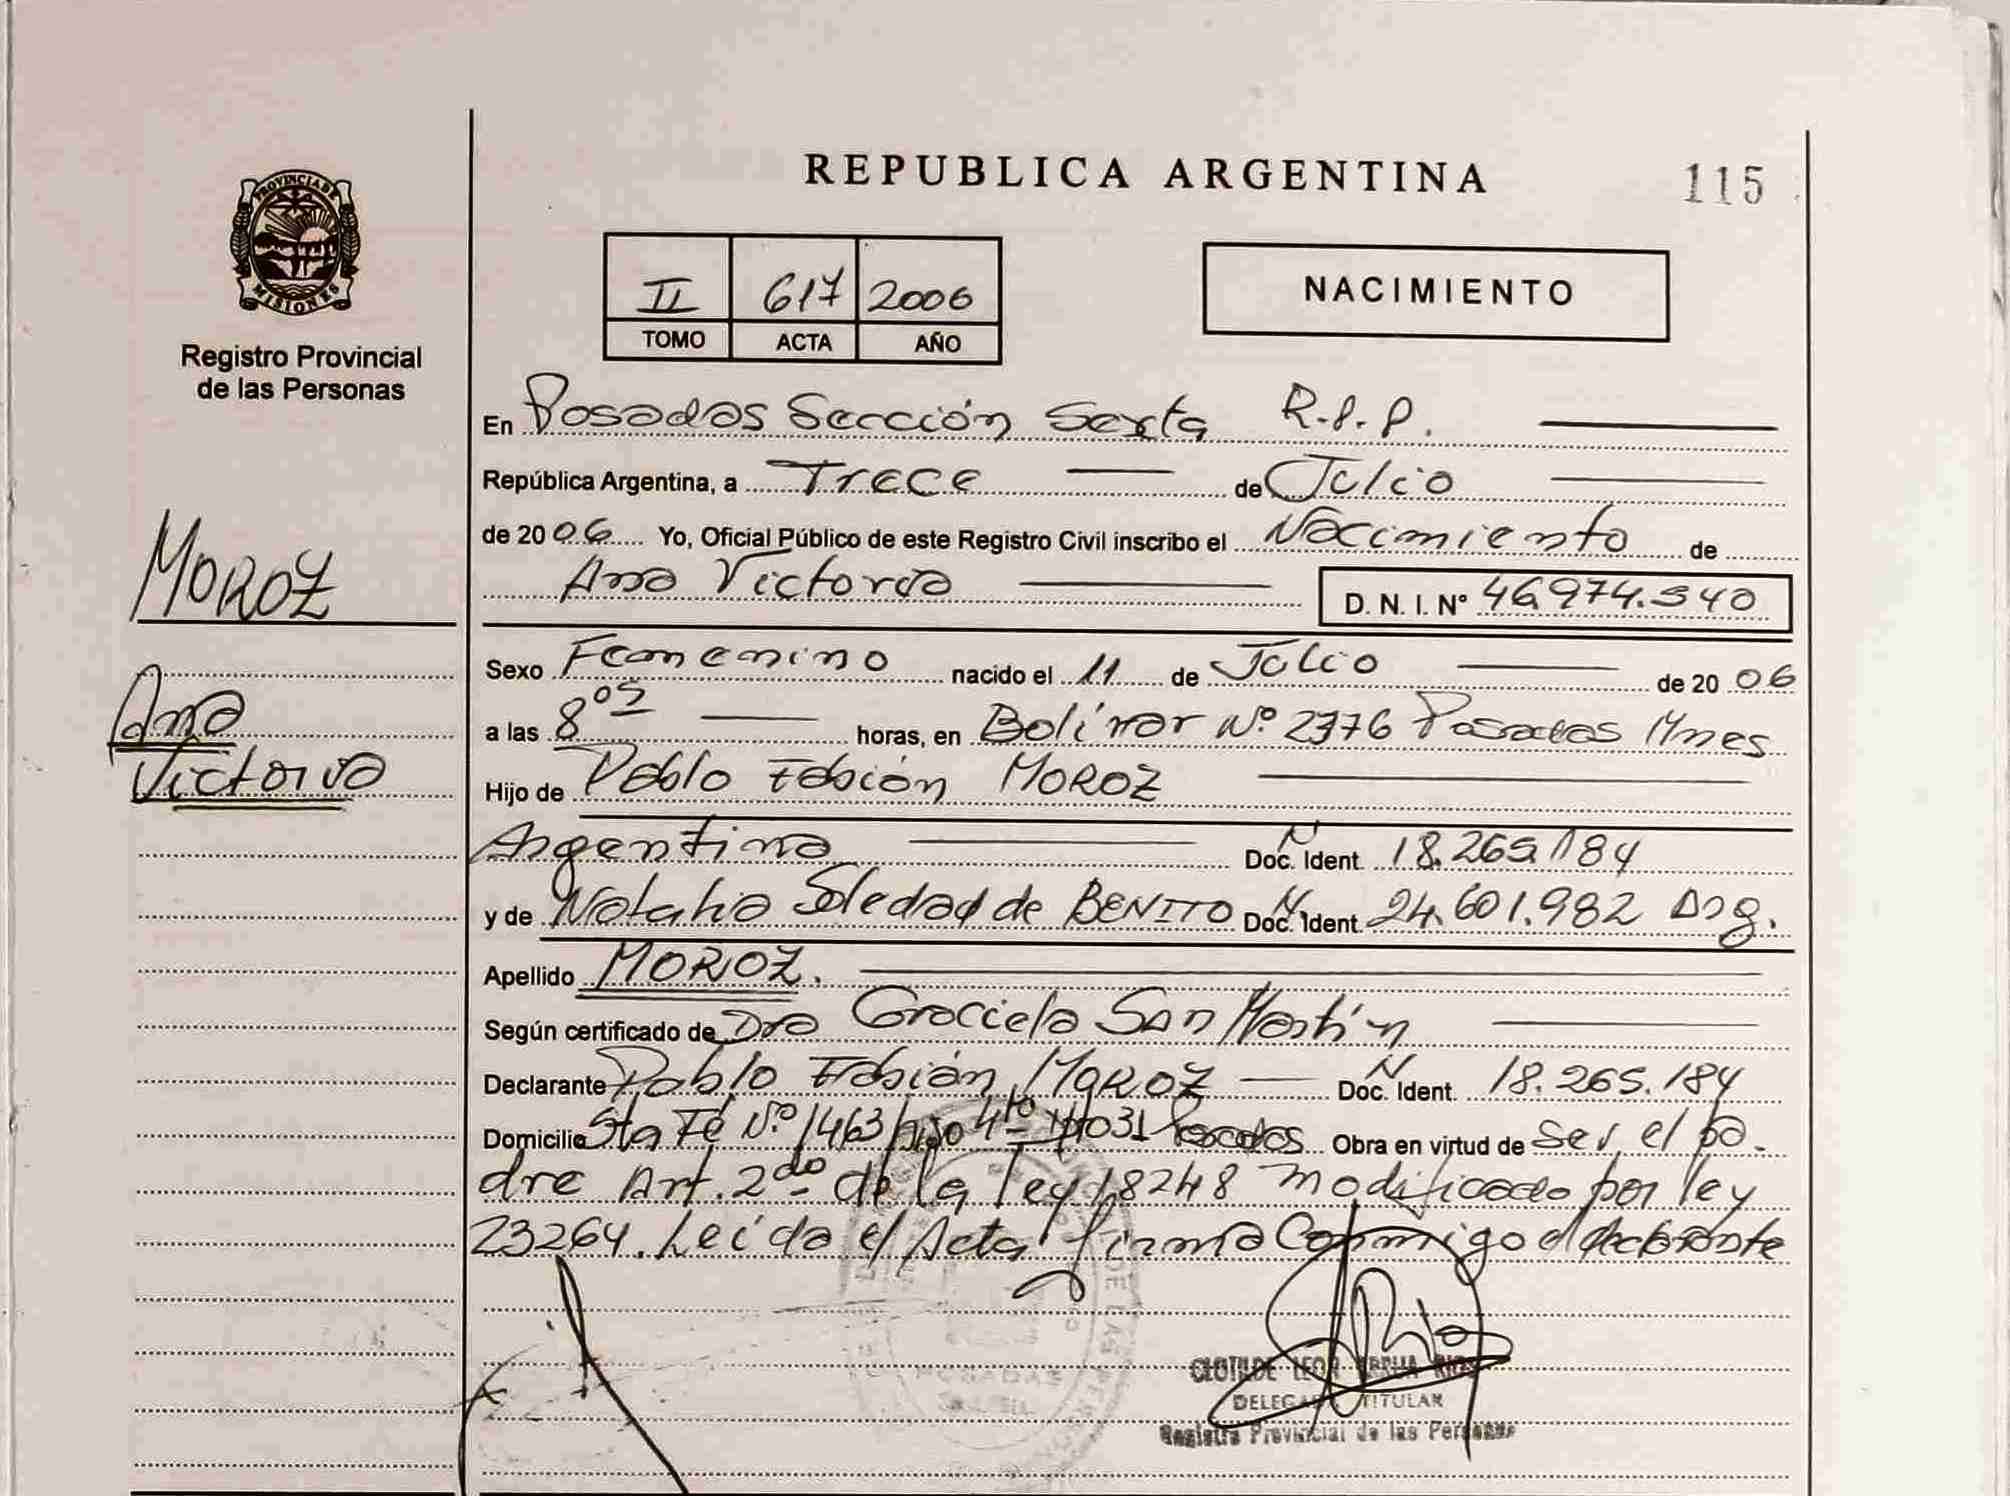 REPUBLICA ARGENTINA
115
PROVINCIA DE
MISIONES
Registro Provincial
de las Personas
II 617 2006
TOMO ACTA AÑO
NACIMIENTO
En Posadas Sección Sexta R.P.P.
República Argentina, a Trece de Julio
de 2006 Yo, Oficial Público de este Registro Civil inscribo el Nacimiento de
Ana Victoria D. N. I. Nº 46.974.340
MOROZ
Ana
Victoria
Sexo Femenino nacido el 11 de Julio de 2006
a las 8 05 horas, en Bolívar Nº 2376 Posadas Mnes
Hijo de Pablo Fabián MOROZ
Argentino Doc. Ident. N 18.265.184
y de Natalia Soledad de BENITO Doc. Ident. N 24.601.982 Arg.
Apellido MOROZ.
Según certificado de Dra Graciela San Martín
Declarante Pablo Fabián MOROZ Doc. Ident. N 18.265.184
Domicilio Sta Fé Nº 1463 Posadas Obra en virtud de ser el pa-
dre Art. 2do de la ley 18248 modificado por ley
23264. Leída el Acta firma conmigo el declarante
POSADAS
CLOTILDE
DELEGADA TITULAR
Registro Provincial de las Personas